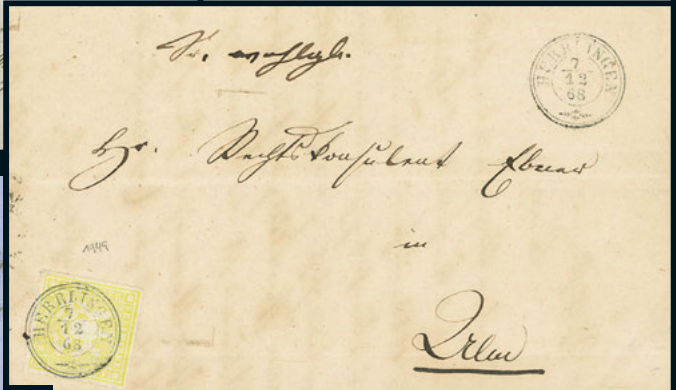 Sr. wohlgb.
HERRLINGEN
7
12
68
Hr. Rechtskonsulent Ebner
in
1949
Ulm
HERRLINGEN
7
12
68